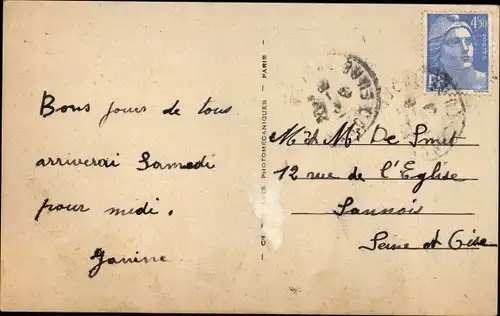 Bons jours de tous
arriverai Samedi
pour midi.
Janine
PHOTOMÉCANIQUES - PARIS
4F50
M et M. De Smet
12 rue de l'Église
Sannois
Seine et Oise